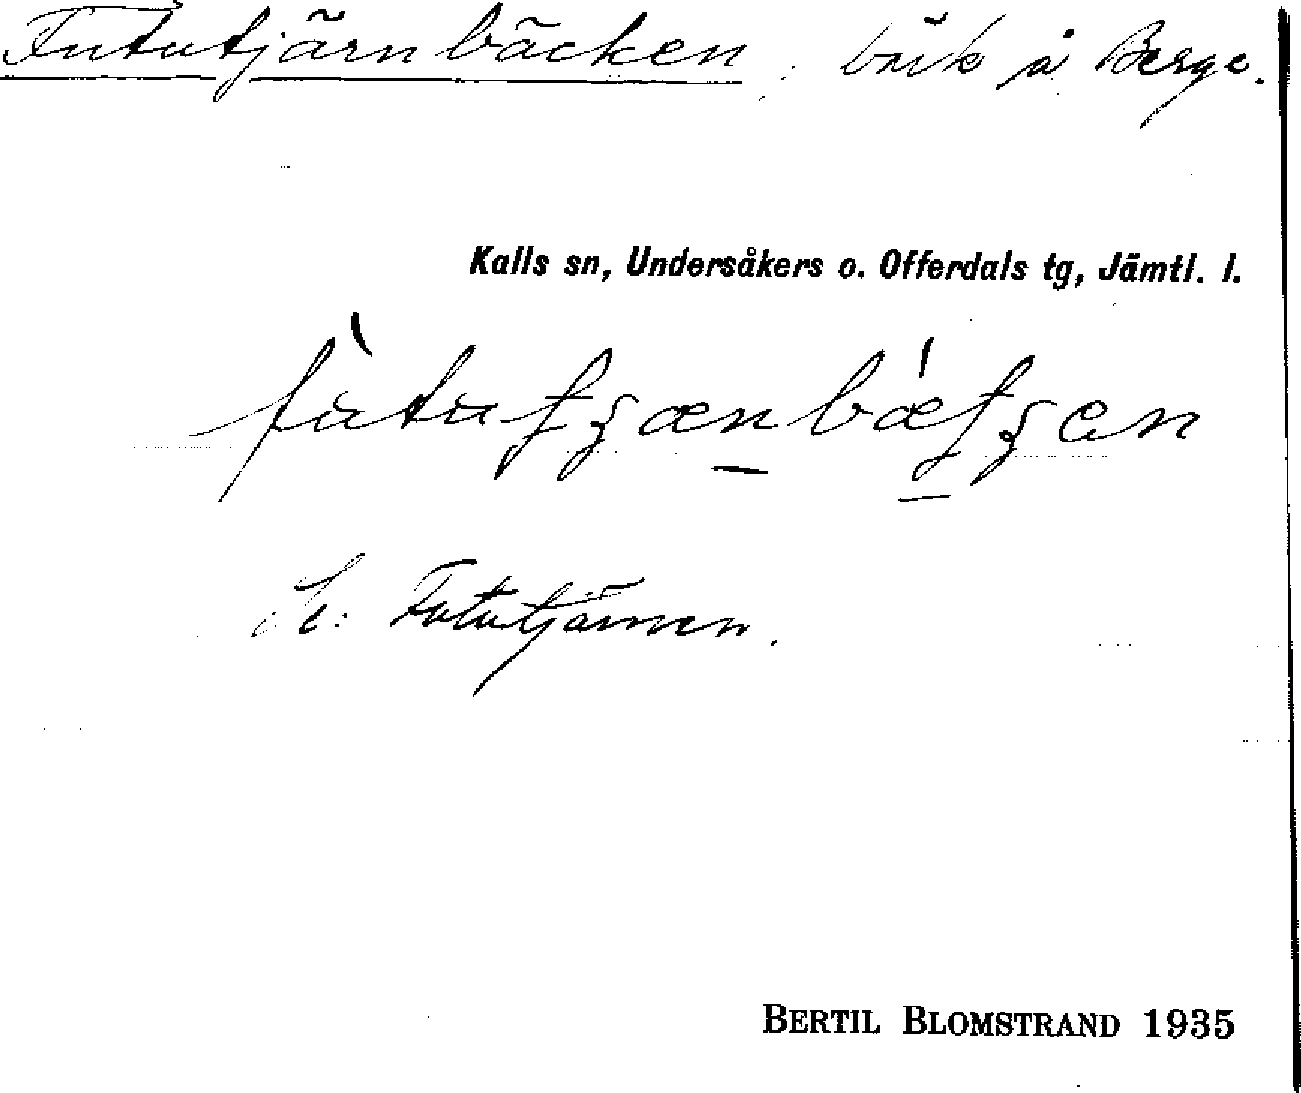 Fututjärnbäcken, bäck å Berge.
Kalls sn, Undersåkers o. Offerdals tg, Jämtl. l.
Se: Fututjärnen.
BERTIL BLOMSTRAND 1935